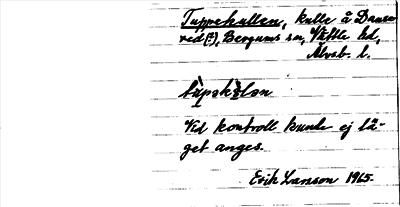 Tuppekullen, kulle å Danse
red(?), Bergums sn, Vättle hd,
Älvsb. l.
Vid kontroll kunde ej lä-
get anges.
Erik Larsson 1965.